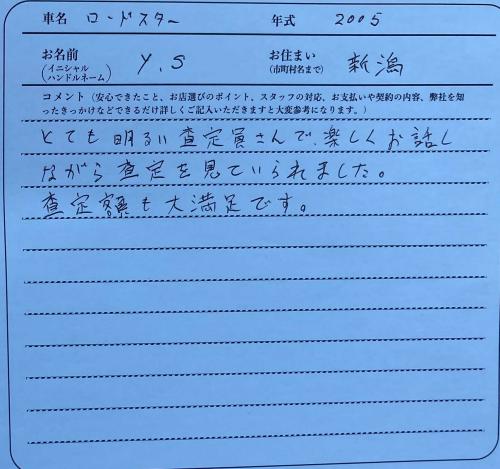 車名 ロードスター 年式 2005
お名前 (イニシャル ハンドルネーム) Y.S お住まい (市町村名まで) 新潟
コメント(安心できたこと、お店選びのポイント、スタッフの対応、お支払いや契約の内容、弊社を知
ったきっかけなどできるだけ詳しくご記入いただきますと大変参考になります。)
とても明るい査定員さんで、楽しくお話し
ながら査定を見ていられました。
査定額も大満足です。